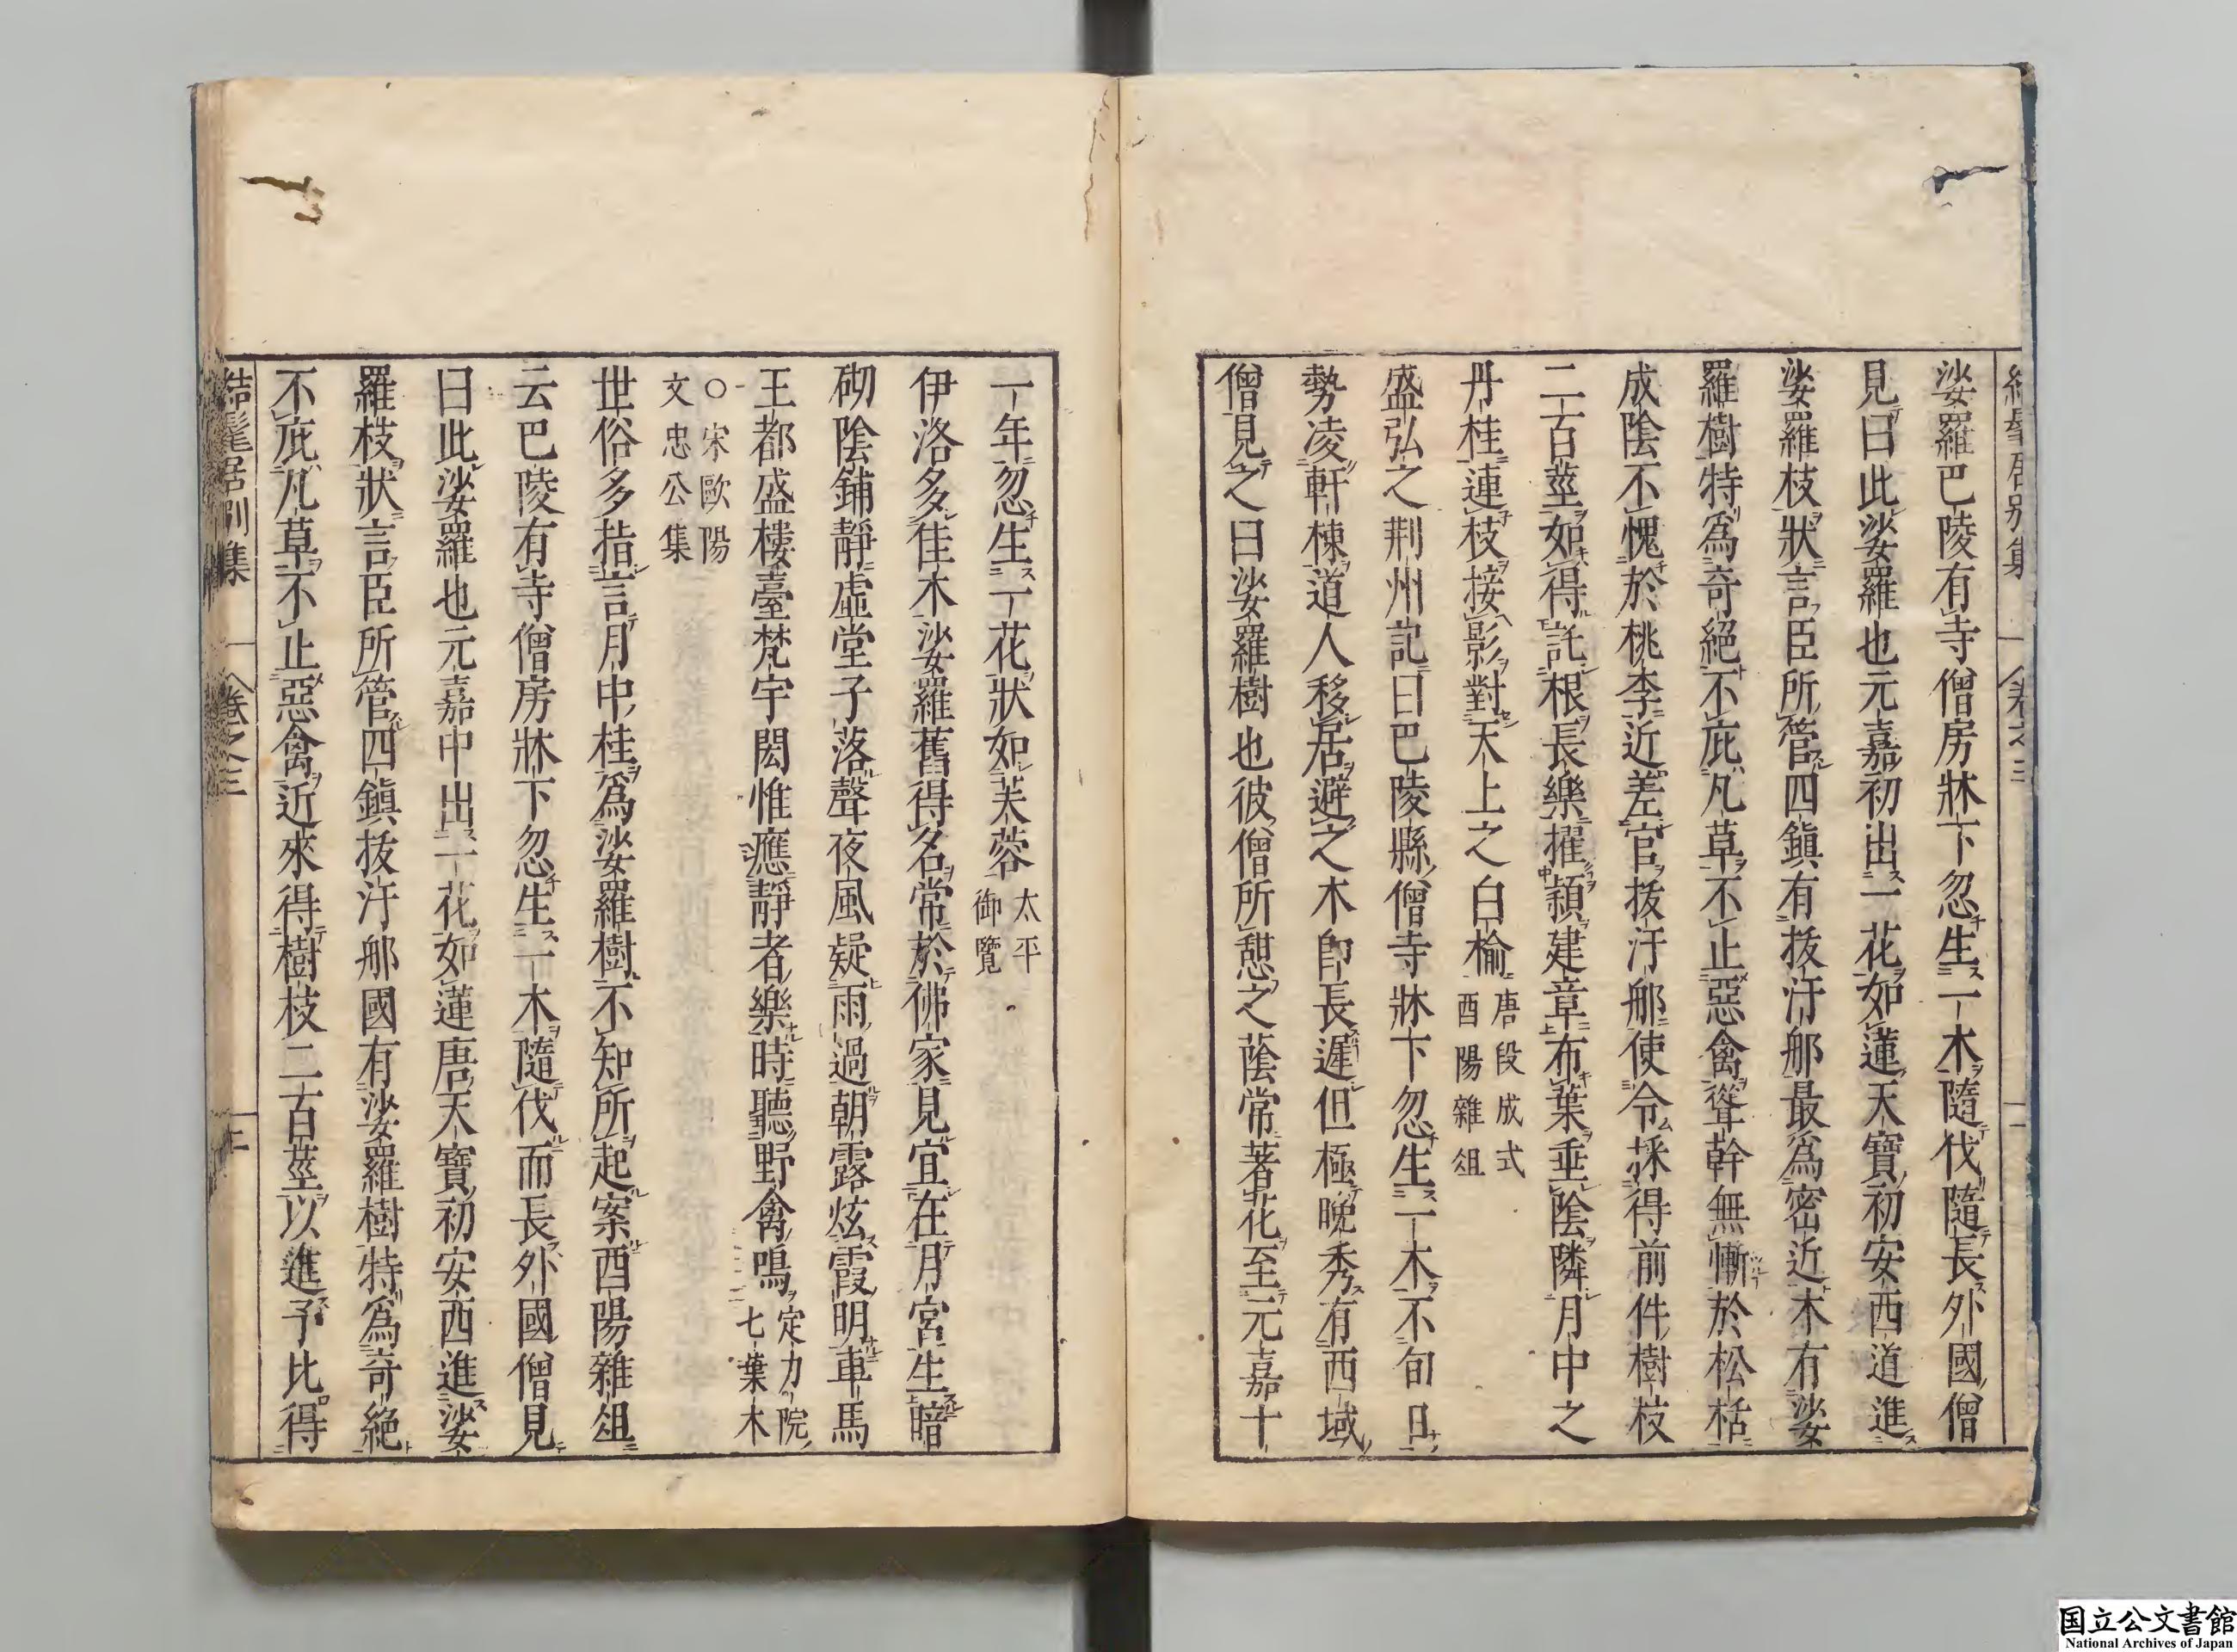 結髦居別集 卷之三 二
娑羅巴陵有寺僧房牀下忽生一木隨伐隨長外國僧
見曰此娑羅也元嘉初出一花如蓮天寶初安西道進
娑羅枝狀言臣所管四鎭有拔汗那最爲密近木有娑
羅樹特爲奇絕不庇凡草不止惡禽聳幹無慚於松栝
成陰不愧於桃李近差官拔汗那使令採得前件樹枝
二百莖如得託根長樂擢頴建章布葉垂陰隣月中之
丹桂連枝接影對天上之白榆唐段成式酉陽雜俎
盛弘之荆州記曰巴陵縣僧寺牀下忽生一木不旬日
勢凌軒棟道人移居避之木卽長遲但極晩秀有西域
僧見之曰娑羅樹也彼僧所憇之蔭常著花至元嘉十
一年忽生一花狀如芙蓉太平御覽
伊洛多佳木娑羅舊得名常於佛家見宜在月宮生暗
砌陰鋪靜虛堂子落聲夜風疑雨過朝露炫霞明車馬
王都盛樓臺梵宇閎惟應靜者樂時聽野禽鳴定力院七葉木
○宋歐陽文忠公集
世俗多指言月中桂爲娑羅樹不知所起案酉陽雜俎
云巴陵有寺僧房牀下忽生一木隨伐而長外國僧見
曰此娑羅也元嘉中出一花如蓮唐天寶初安西進娑
羅枝狀言臣所管四鎭拔汗那國有娑羅樹特爲奇絕
不庇凡草不止惡禽近來得樹枝二百莖以進予比得
結髦居別集 卷之三 三
国立公文書館
National Archives of Japan